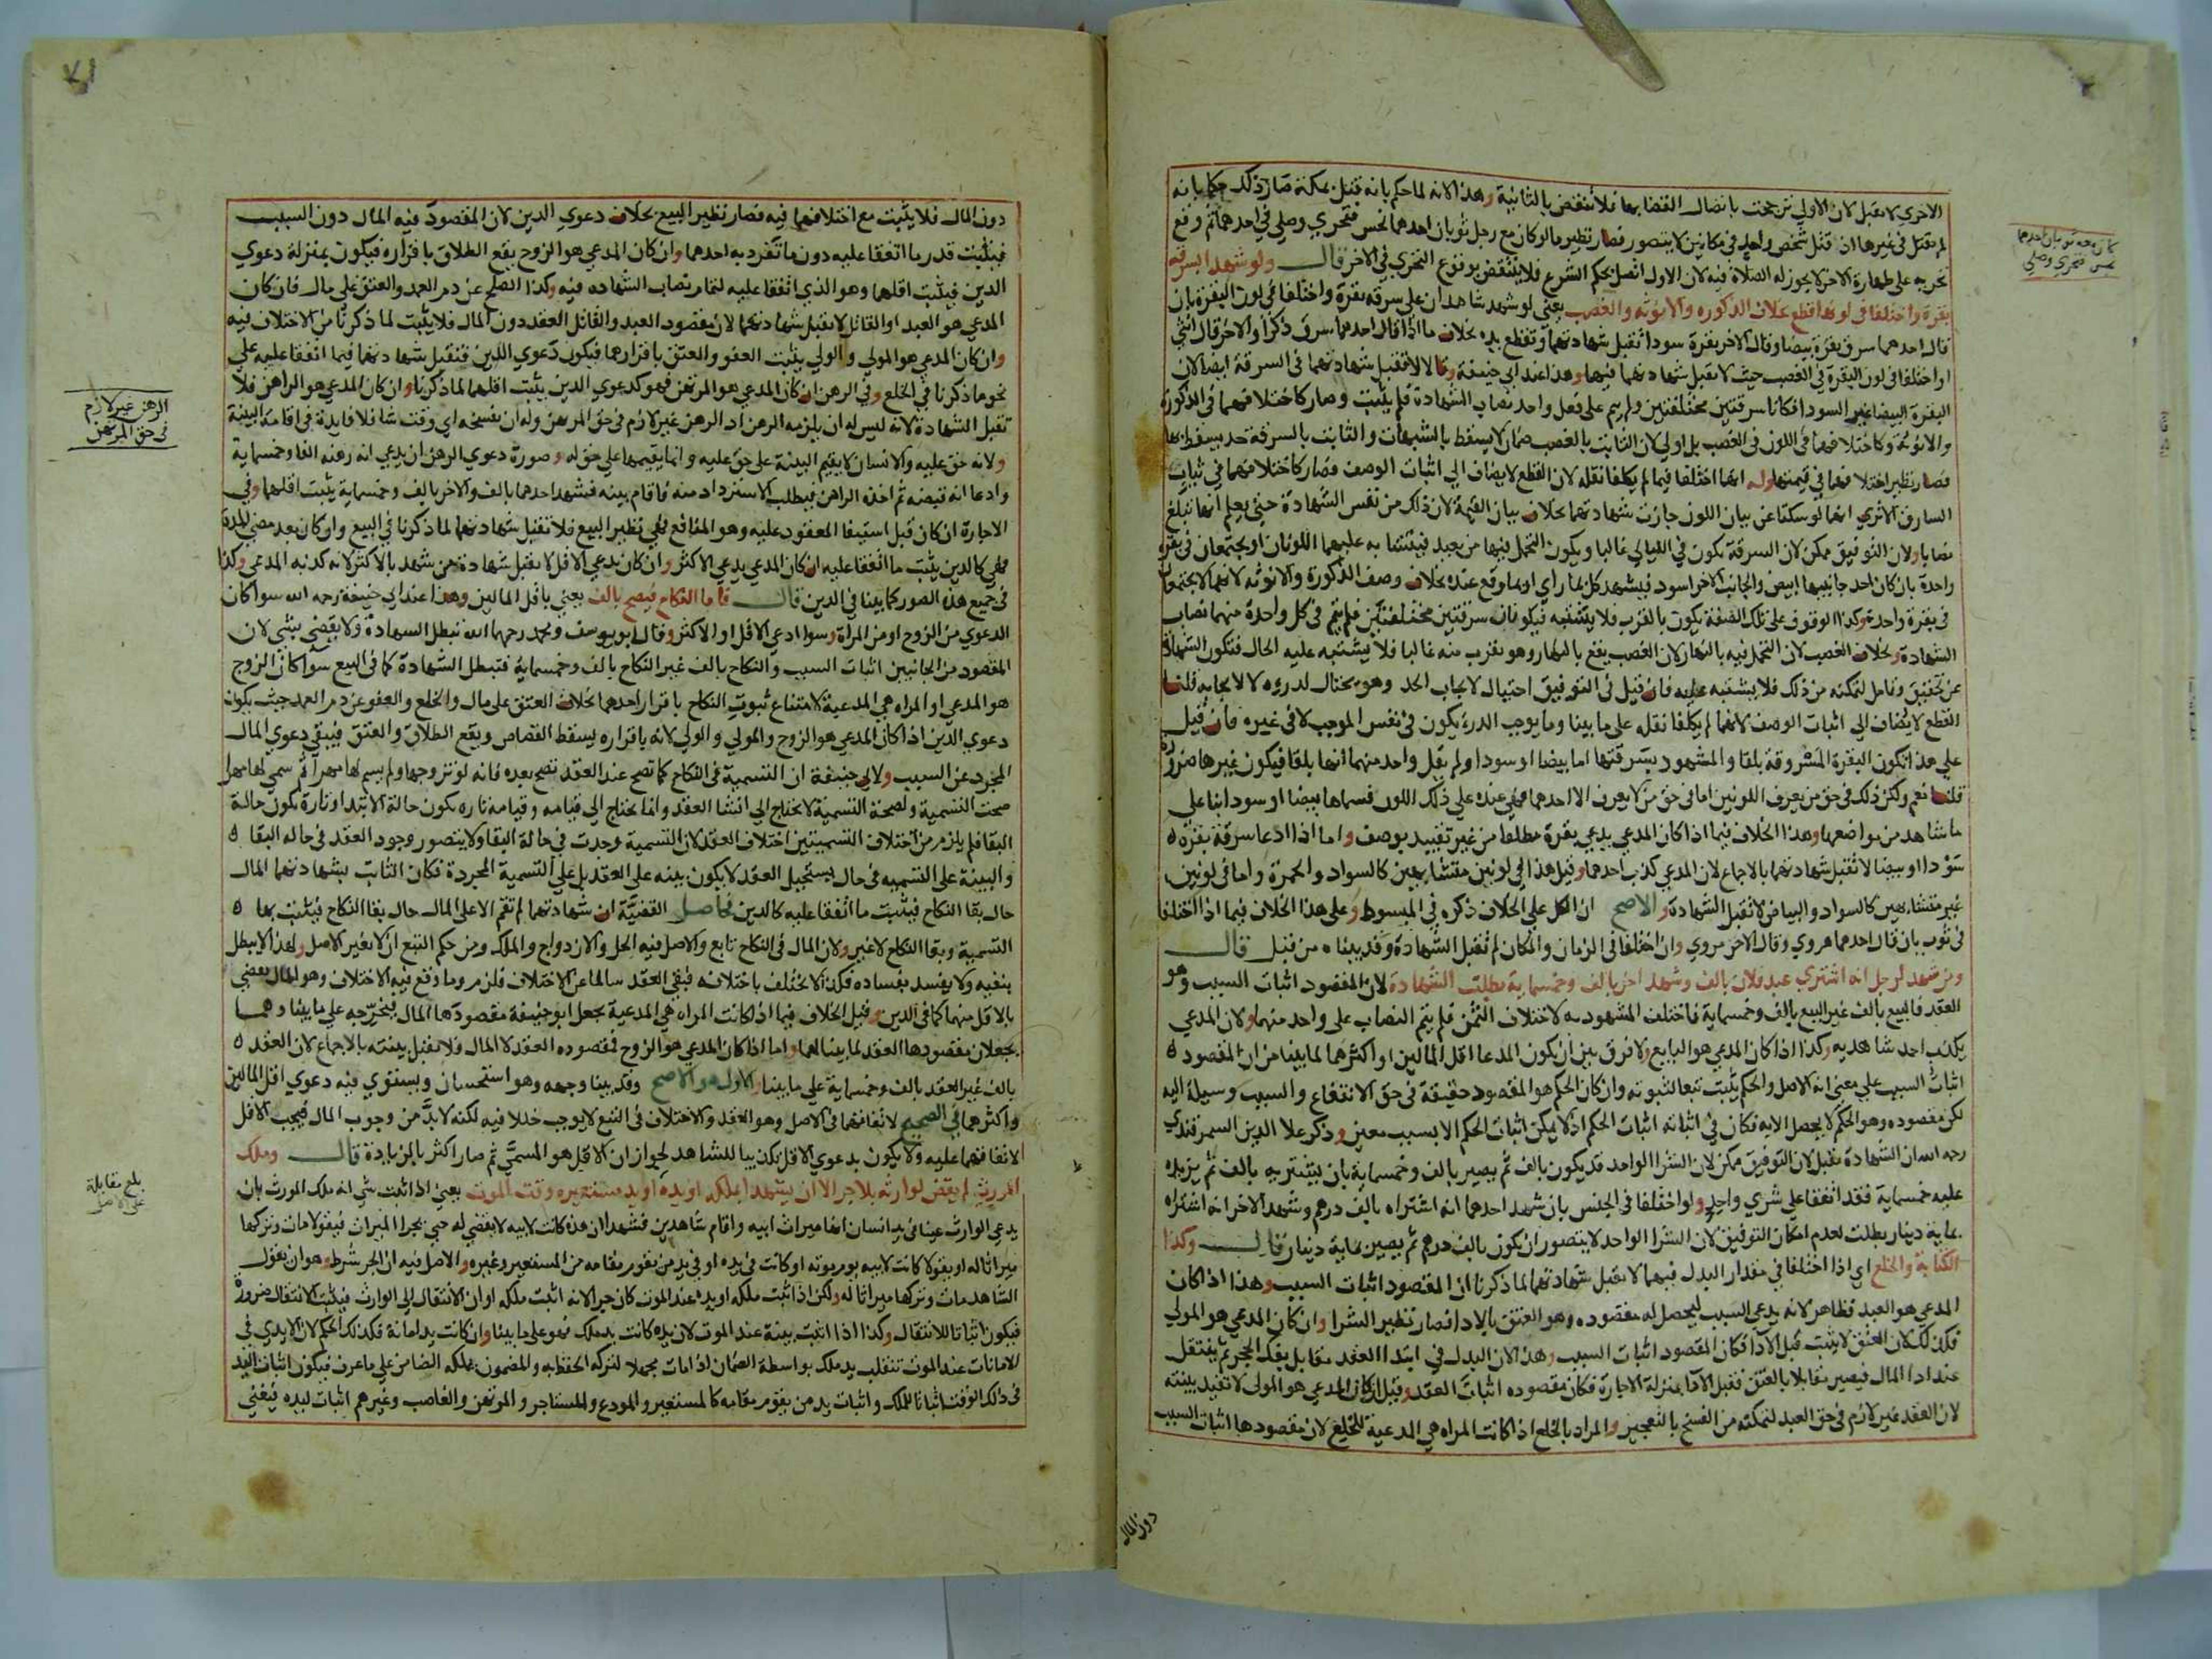 الاخري لا تقبل لان الاولي ترجحت باتصال القضا بها فلا تنتقض بالثانية وهذا لانه لما حكم بانه قتل بمكة صار ذلك حكما بانه
لم يقتل في غيرها اذ قتل شخص واحد في مكانين لا يتصور فصار نظير ما لو كان مع رجل ثوبان احدهما نجس فتحري وصلي في احدهما ثم وقع
تحريه علي طهارة الاخر لا يجوز له الصلاة فيه لان الاول اتصل بحكم الشرع فلا ينتقض بوقوع التحري في الاخر قال ولو شهدا بسرقة
بقرة واختلفا في لونها قطع بخلاف الذكورة والانوثة والغصب يعني لو شهد شاهدان علي سرقة بقرة واختلفا في لون البقرة بان
قال احدهما سرق بقرة بيضا وقال الاخر بقرة سودا تقبل شهادتهما وتقطع يده بخلاف ما اذا قال احدهما سرق ذكرا والاخر قال انثي
او اختلفا في لون البقرة في الغصب حيث لا تقبل شهادتهما فيها وهذا عند ابي حنيفة وقالا لا تقبل شهادتهما في السرقة ايضا لان
البقرة البيضا غير السودا فكانا سرقتين مختلفتين ولم يتم علي فعل واحد نصاب الشهادة فلم يثبت وصار كاختلافهما في الذكورة
والانوثة وكاختلافهما في اللون في الغصب بل اولي لان الثابت بالغصب ضمان لا يسقط بالشبهات والثابت بالسرقة حد يسقط بها
فصار نظير اختلافهما في قيمتها وله انهما اختلفا فيما لم يكلفا نقله لان القطع لا يضاف الي اثبات الوصف فصار كاختلافهما في ثياب
السارق الا تري انهما لو سكتا عن بيان اللون جازت شهادتهما بخلاف بيان القيمة لان ذلك من نفس الشهادة حتي يعلم انها تبلغ
نصابا ولان التوفيق ممكن لان السرقة تكون في الليالي غالبا ويكون التحمل فيها من بعيد فيتشابه عليهما اللونان او يجتمعان في بقرة
واحدة بان كان احد جانبيها ابيض والجانب الاخر اسود فيشهد كل بما راي او بما وقع عنده بخلاف وصف الذكورة والانوثة لانهما لا يجتمعان
في بقرة واحدة وكذا الوقوف علي تلك الصفة يكون بالقرب فلا يشتبه فيكونان سرقتين مختلفتين فلم يتم في كل واحدة منهما نصاب
الشهادة وبخلاف الغصب لان التحمل فيه بالنهار لان الغصب يقع بالنهار وهو بقرب منه غالبا فلا يشتبه عليه الحال فتكون الشهادة
عن تحقيق وتامل لتمكنه من ذلك فلا يشتبه عليه فان قيل في التوفيق احتيال لايجاب الحد وهو يحتال لدرءه لا لايجابه قلنا
القطع لا يضاف الي اثبات الوصف لانهما لم يكلفا نقله علي ما بينا وما يوجب الدرء يكون في نفس الموجب لا في غيره فان قيل
علي هذا تكون البقرة المسروقة بلقا والمشهود بسرقتها اما بيضا او سودا ولم يقل واحد منهما انها بلقا فيكون غيرها ضرورة
قلنا نعم ولكن ذلك في حق من يعرف اللونين اما في حق من لا يعرف الا احدهما فهي عنده علي ذلك اللون فسماها بيضا او سودا بنا علي
ما شاهد من مواضعها وهذا الخلاف فيما اذا كان المدعي يدعي بقرة مطلقا من غير تقييد بوصف واما اذا ادعا سرقة بقرة
سودا او بيضا لا تقبل شهادتهما بالاجماع لان المدعي كذب احدهما وقيل هذا في لونين متشابهين كالسواد والحمرة واما في لونين
غير متشابهين كالسواد والبياض لا تقبل الشهادة والاصح ان الكل علي الخلاف ذكره في المبسوط وعلي هذا الخلاف فيما اذا اختلفا
في ثوب بان قال احدهما هروي وقال الاخر مروي وان اختلفا في الزمان والمكان لم تقبل الشهادة وقد بيناه من قبل قال
ومن شهد لرجل انه اشتري عبد فلان بالف وشهد اخر بالف وخمسماية بطلت الشهادة لان المقصود اثبات السبب وهو
العقد فالبيع بالف غير البيع بالف وخمسماية فاختلف المشهود به لاختلاف الثمن فلم يتم النصاب علي واحد منهما ولان المدعي
يكذب احد شاهديه وكذا اذا كان المدعي هو البايع ولا فرق بين ان يكون المدعا اقل المالين او اكثرهما لما بينا من ان المقصود
اثبات السبب علي معني انه الاصل والحكم يثبت تبعا لثبوته وان كان الحكم هو المقصود حقيقة في حق الانتفاع والسبب وسيلة اليه
لكن مقصوده وهو الحكم لا يحصل الا به فكان في اثباته اثبات الحكم اذ لا يمكن اثبات الحكم الا بسبب معين وذكر علا الدين السمرقندي
رحمه الله ان الشهادة تقبل لان التوفيق ممكن لان الشرا الواحد قد يكون بالف ثم يصير بالف وخمسماية بان يشتريه بالف ثم يزيده
عليه خمسماية فقد اتفقا علي شري واحد ولو اختلفا في الجنس بان شهد احدهما انه اشتراه بالف درهم وشهد الاخر انه اشتراه
بماية دينار بطلت لعدم امكان التوفيق لان الشرا الواحد لا يتصور ان يكون بالف درهم ثم يصير بماية دينار قال وكذا
الكتابة والخلع اي اذا اختلفا في مقدار البدل فيهما لا تقبل شهادتهما لما ذكرنا ان المقصود اثبات السبب وهذا اذا كان
المدعي هو العبد فظاهر لانه يدعي السبب ليحصل له مقصوده وهو العتق بالادا فصار نظير الشرا وان كان المدعي هو المولي
فكذلك لان العتق لا يثبت قبل الادا فكان المقصود اثبات السبب وهذا لان البدل في ابتدا العقد مقابل بفك الحجر ثم ينتقل
عند ادا المال فيصير مقابلا بالعتق فقبل الادا بمنزلة الاجارة فكان مقصوده اثبات العقد وقيل ان كان المدعي هو المولي لا تفيد بينته
لان العقد غير لازم في حق العبد لتمكنه من الفسخ بالتعجيز والمراد بالخلع اذا كانت المراة هي المدعية للخلع لان مقصودها اثبات السبب
دون المال
كان معه ثوبان احدهما
نجس فتحري وصلي
٧١
دون المال فلا يثبت مع اختلافهما فيه فصار نظير البيع بخلاف دعوي الدين لان المقصود فيه المال دون السبب
فيثبت قدر ما اتفقا عليه دون ما تفرد به احدهما وان كان المدعي هو الزوج يقع الطلاق باقراره فيكون بمنزلة دعوي
الدين فيثبت اقلهما وهو الذي اتفقا عليه لتمام نصاب الشهادة فيه وكذا الصلح عن دم العمد والعتق علي مال فان كان
المدعي هو العبد او القاتل لا تقبل شهادتهما لان مقصود العبد والقاتل العقد دون المال فلا يثبت لما ذكرنا من الاختلاف فيه
وان كان المدعي هو المولي والولي يثبت العفو والعتق باقرارهما فيكون دعوي الدين فتقبل شهادتهما فيما اتفقا عليه علي
نحو ما ذكرنا في الخلع وفي الرهن ان كان المدعي هو المرتهن فهو كدعوي الدين يثبت اقلهما لما ذكرنا وان كان المدعي هو الراهن فلا
تقبل الشهادة لانه ليس له ان يلزمه الرهن اذ الرهن غير لازم في حق المرتهن وله ان يفسخه اي وقت شا فلا فايدة في اقامة البينة
ولانه حق عليه والانسان لا يقيم البينة علي حق عليه وانما يقيمها علي حق له وصورة دعوي الرهن ان يدعي انه رهنه الفا وخمسماية
وادعا انه قبضه ثم اخذه الراهن فيطلب الاسترداد منه فاقام بينة فشهد احدهما بالف والاخر بالف وخمسماية يثبت اقلهما وفي
الاجارة ان كان قبل استيفا المعقود عليه وهو المنافع فهي نظير البيع فلا تقبل شهادتهما لما ذكرنا في البيع وان كان بعد مضي المدة
فهي كالدين يثبت ما اتفقا عليه ان كان المدعي يدعي الاكثر وان كان يدعي الاقل لا تقبل شهادة من شهد بالاكثر لانه كذبه المدعي وكذا
في جميع هذه الصور كما بينا في الدين قال فاما النكاح فيصح بالف يعني باقل المالين وهذا عند ابي حنيفة رحمه الله سوا كان
الدعوي من الزوج او من المراة وسوا ادعي الاقل او الاكثر وقال ابو يوسف ومحمد رحمهما الله تبطل الشهادة ولا يقضي بشي لان
المقصود من الجانبين اثبات السبب والنكاح بالف غير النكاح بالف وخمسماية فتبطل الشهادة كما في البيع سوا كان الزوج
هو المدعي او المراة هي المدعية لامتناع ثبوت النكاح باقرار احدهما بخلاف العتق علي مال والخلع والعفو عن دم العمد حيث يكون
دعوي الدين اذا كان المدعي هو الزوج والمولي والولي لانه باقراره يسقط القصاص ويقع الطلاق والعتق فيبقي دعوي المال
المجرد عن السبب ولابي حنيفة ان التسمية في النكاح كما تصح عند العقد تصح بعده فانه لو تزوجها ولم يسم لها مهرا ثم سمي لها مهرا
صحت التسمية ولصحة التسمية لا يحتاج الي انشا العقد وانما يحتاج الي قيامه وقيامه تارة يكون حالة الابتدا وتارة يكون حالة
البقا فلم يلزم من اختلاف التسميتين اختلاف العقد لان التسمية وجدت في حالة البقا ولا يتصور وجود العقد في حالة البقا
والبينة علي التسمية في حال يستحيل العقد لا يكون بينة علي العقد بل علي التسمية المجردة فكان الثابت بشهادتهما المال
حال بقا النكاح فيثبت ما اتفقا عليه كالدين فحاصل القضية ان شهادتهما لم تقم الا علي المال حال بقا النكاح فيثبت بها
التسمية وبقا النكاح لا غير ولان المال في النكاح تابع والاصل فيه الحل والازدواج والملك ومن حكم التبع ان لا يغير الاصل ولهذا لا يبطل
بنفيه ولا يفسد بفساده فكذا لا يختلف باختلافه فبقي العقد سالما عن الاختلاف فلزم وما وقع فيه الاختلاف وهو المال يقضي
بالاقل منهما كما في الدين وقيل الخلاف فيما اذا كانت المراة هي المدعية يجعل ابو حنيفة مقصودها المال فيخرجه علي ما بينا وهما
يجعلان مقصودها العقد لما بينا لهما واما اذا كان المدعي هو الزوج فمقصوده العقد لا المال فلا تقبل بينته بالاجماع لان العقد
بالف غير العقد بالف وخمسماية علي ما بينا والاول هو الاصح وقد بينا وجهه وهو استحسان ويستوي فيه دعوي اقل المالين
واكثرهما في الصحيح لاتفاقهما في الاصل وهو العقد والاختلاف في التبع لا يوجب خللا فيه لكنه لا بد من وجوب المال فيجب الاقل
لاتفاقهما عليه ولا يكون بدعوي الاقل تكذيبا للشاهد لجواز ان الاقل هو المسمي ثم صار اكثر بالزيادة قال وملك
المورث لم يقض لوارثه بلا جر الا ان يشهدا بملكه او يده او يد مستعيره وقت الموت يعني اذا اثبت شي انه ملك المورث بان
يدعي الوارث عينا في يد انسان انها ميراث ابيه واقام شاهدين فشهدا ان هذه كانت لابيه لا يقضي له حتي يجرا الميراث فيقولا مات وتركها
ميراثا له او يقولا كانت لابيه يوم موته او كانت في يده او في يد من يقوم مقامه من المستعير وغيره والاصل فيه ان الجر شرط وهو ان يقول
الشاهد مات وتركها ميراثا له ولكن اذا اثبت ملكه او يده عند الموت كان جرا لانه اثبت ملكه اوان الانتقال الي الوارث فيثبت الانتقال ضرورة
فيكون اثباتا للانتقال وكذا اذا اثبت بينة عند الموت لان يده كانت يد ملك فهو علي ما بينا وان كانت يد امانة فكذلك الحكم لان الايدي في
الامانات عند الموت تنقلب يد ملك بواسطة الضمان اذا مات مجهلا لتركه الحفظ به والمضمون يملكه الضامن علي ما عرف فيكون اثبات اليد
في ذلك الوقت اثباتا للملك واثبات يد من يقوم مقامه كالمستعير والمودع والمستاجر والمرتهن والغاصب وغيرهم اثبات ليده فيغني
الرهن غير لازم
في حق المرتهن
بلغ مقابلة
علي الاصل